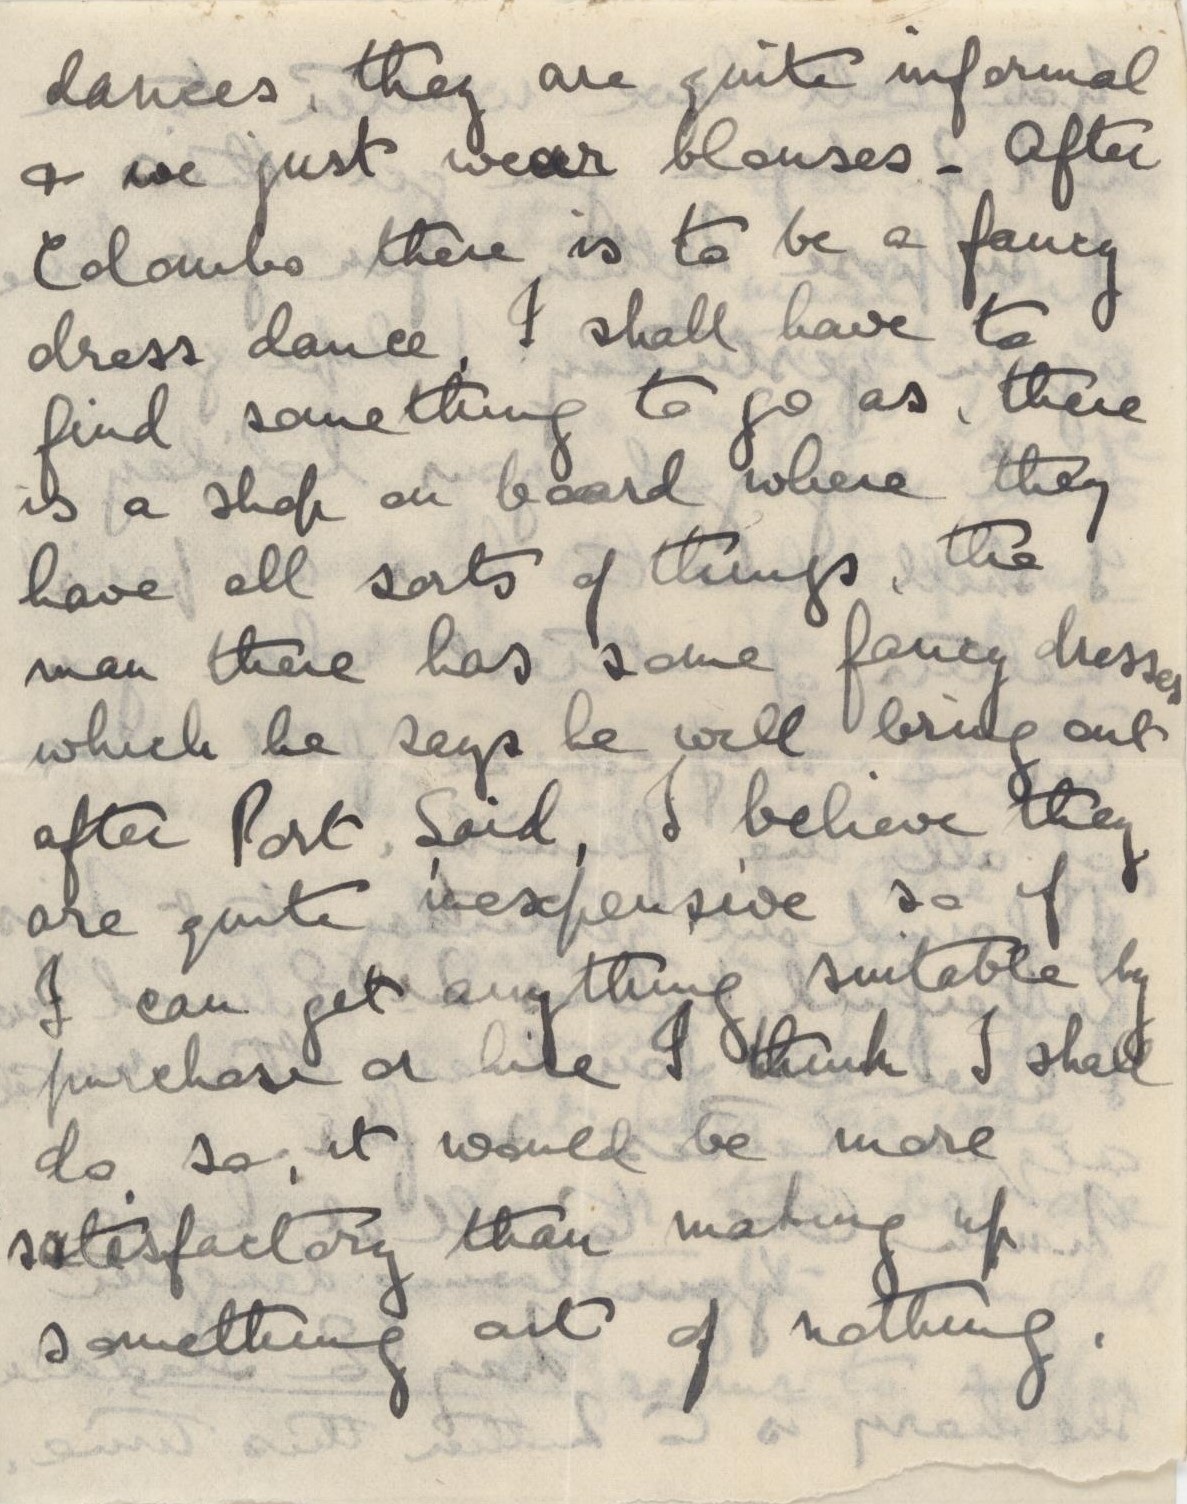 dances, they are quite informal
& we just wear blouses - After
Colombo there is to be a fancy
dress dance, I shall have to
find something to go as, there
is a shop on board where they
have all sorts of things, the
man there has some fancy dresses
which he says he will bring out
after Port Said, I believe they
are quite inexpensive so if
I can get anything suitable by
purchase or hire I think I shall
do so, it would be more
satisfactory than making up
something out of nothing.